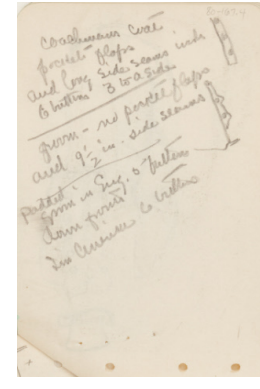 coachmans coat
pocket flaps
and long side seams inch
6 buttons 3 to a side
groom - no pocket flaps
and 9 1/2 in. side seams
groom in Eng. 5 buttons
down front
in America 6 buttons